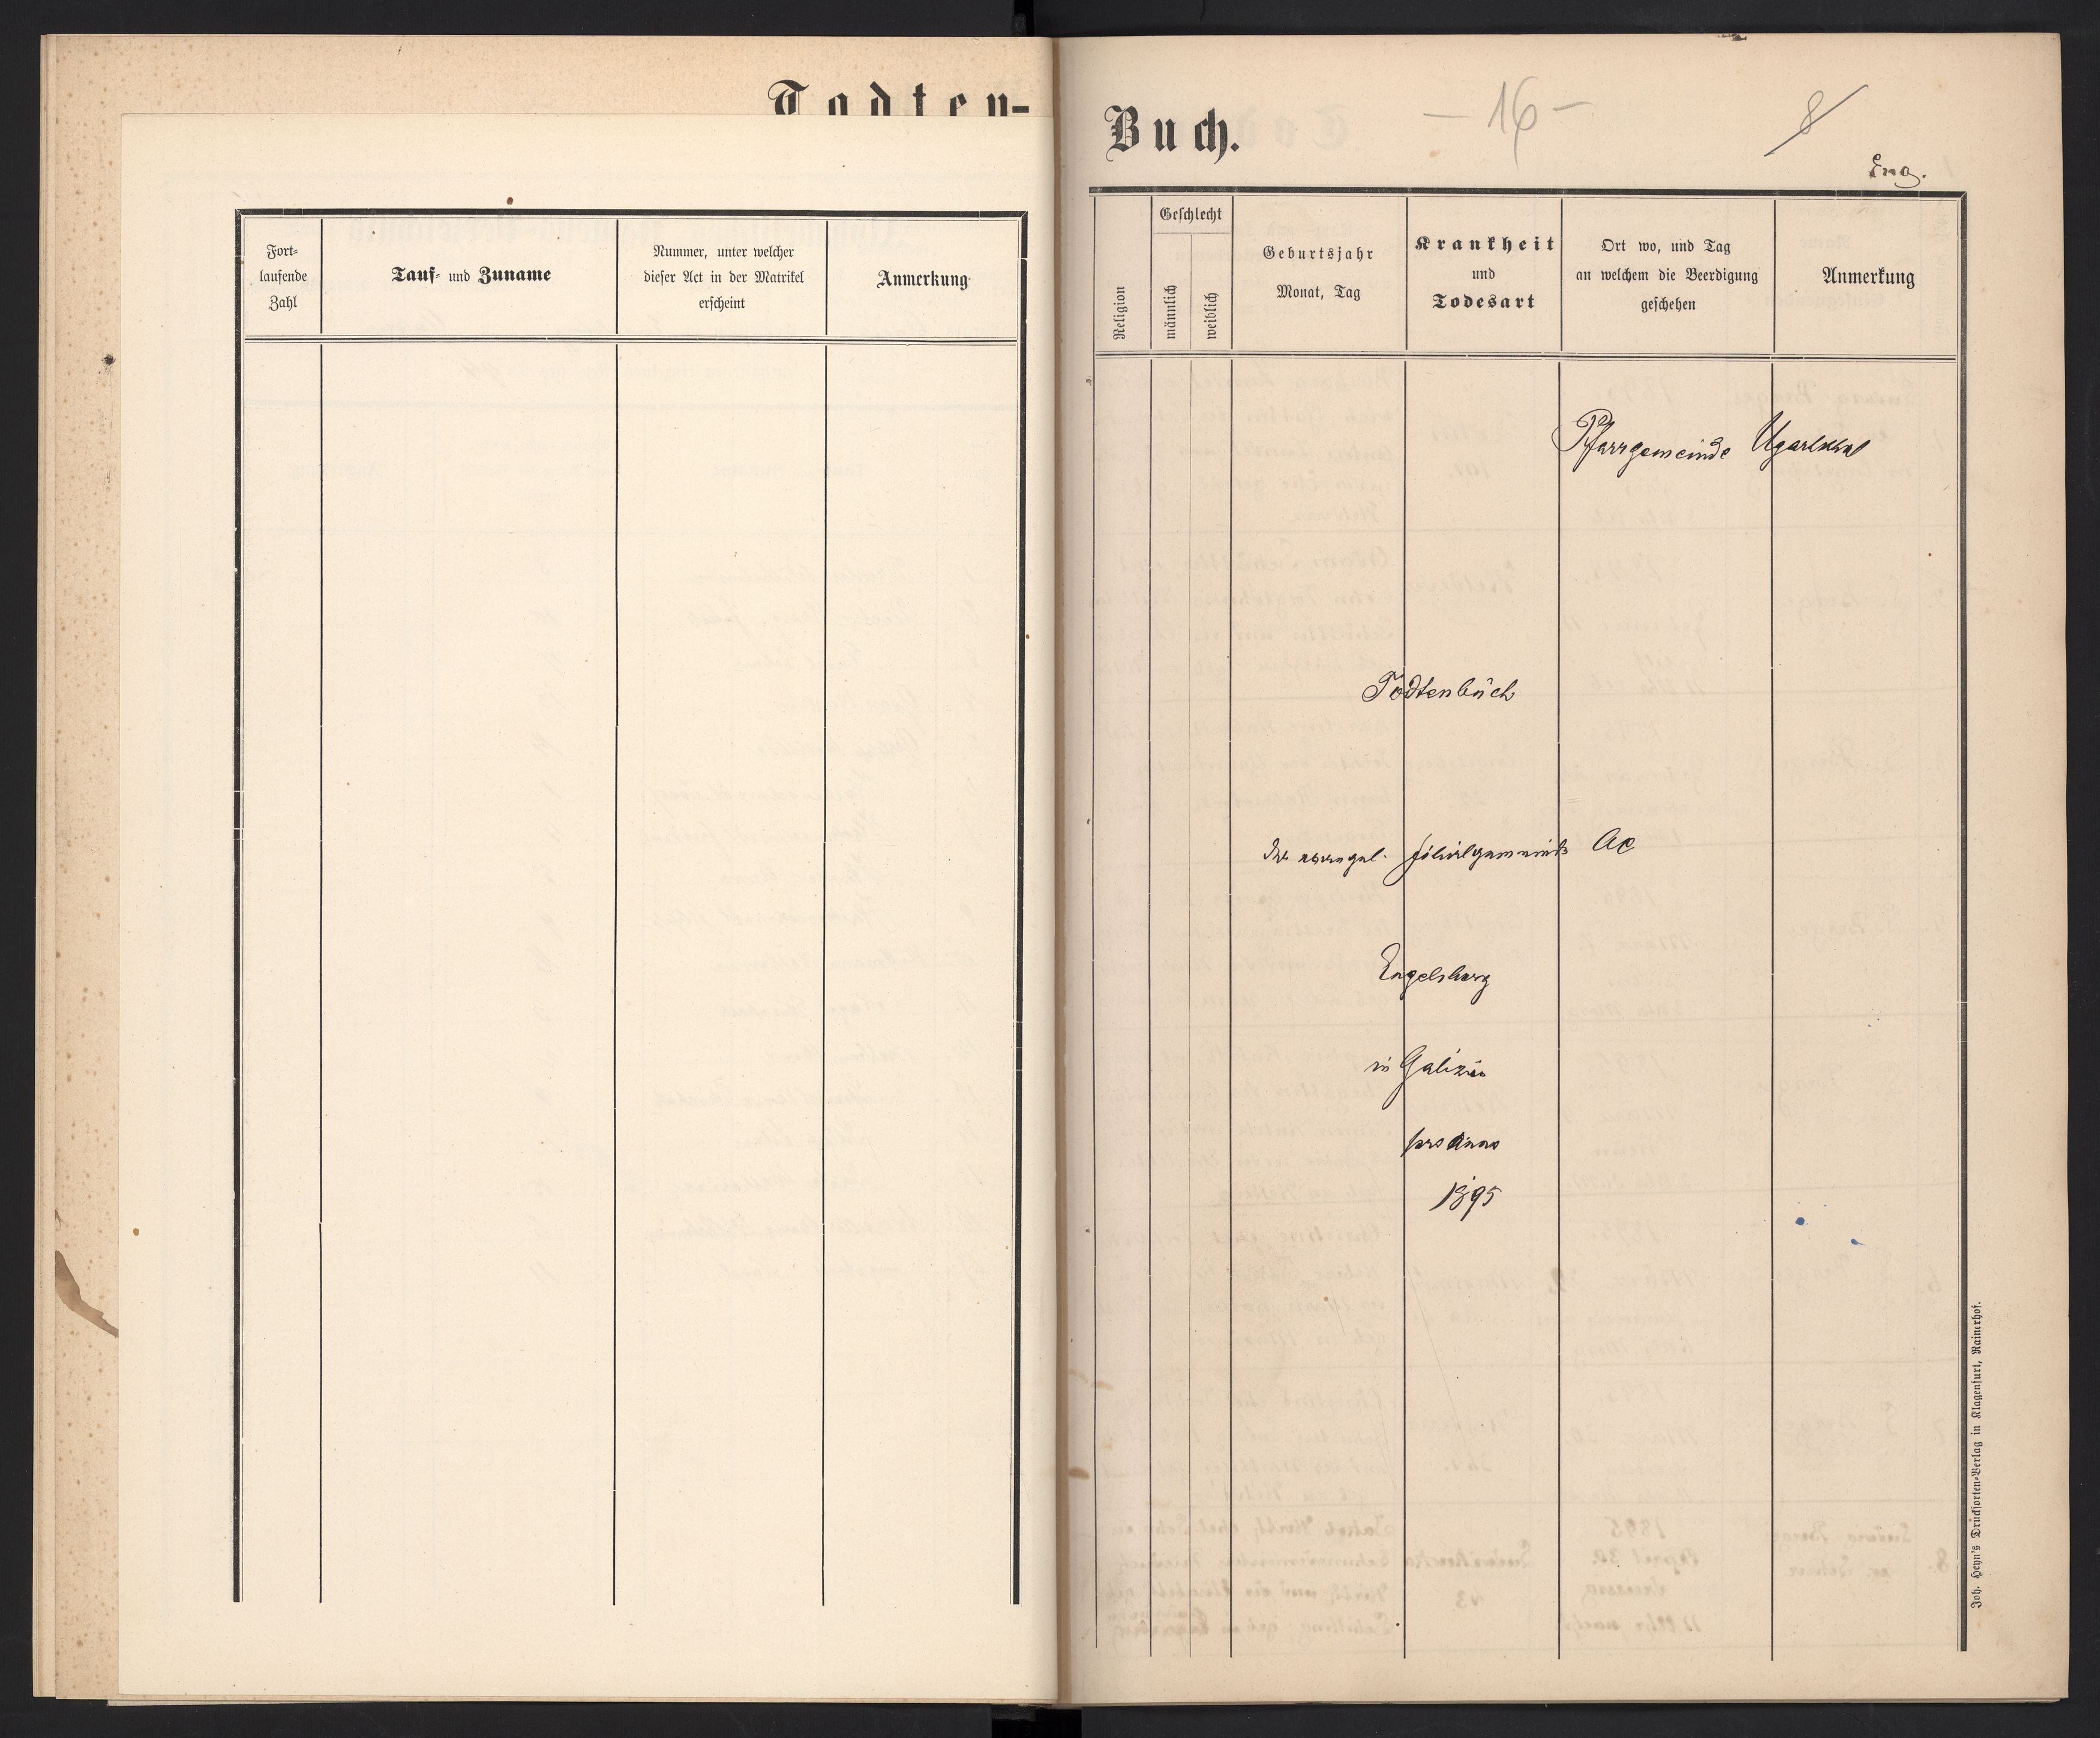 Todten-
Fort-
laufende
Zahl
Tauf- und Zuname
Nummer, unter welcher
dieser Act in der Matrikel
erscheint
Anmerkung
Buch.
- 16 -
8
Eng.
Religion
Geschlecht
männlich
weiblich
Geburtsjahr
Monat, Tag
Krankheit
und
Todesart
Ort wo, und Tag
an welchem die Beerdigung
geschehen
Anmerkung
Pfarrgemeinde Ugartsthal
Todtenbuch
der evangel. Filialgemeinde AC
Engelsberg
in Galizien
pro anno
1895
Joh. Heyn's Drucksorten-Verlag in Klagenfurt, Rainerhof.